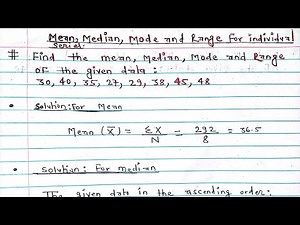 Mean, Median, Mode and Range for individual
series.
# Find the mean, Median, Mode and Range
of the given data :
30, 40, 35, 27, 29, 38, 45, 48
• Solution: For Mean
Mean (X̄) = ΣX/N = 292/8 = 36.5
• Solution: For median
The given data in the ascending order: